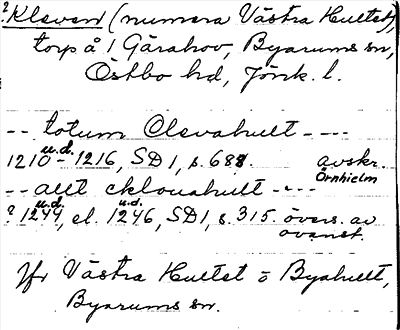 ? Kleven (numera Västra Hultet),
torp å 1 Gärahov, Byarums sn,
Östbo hd, Jönk. l.
-- totum Olsvahult ----
u.d.
1210 - 1216, SD 1, s. 688. avskr.
Örnhielm
-- allt eklouahult ----
u.d. u.d.
? 1244, el. 1246, SD 1, s. 315. övers. av
ovanst.
Jfr Västra Hultet o Byahult,
Byarums sn.